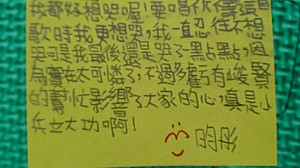 我都好想哭喔!要唱依依難這首
歌時我更想哭,我一直忍住不想
哭可是我最後還是哭了一點點,因
為實在太可憐了,不過多虧有峻賢
的幫忙影響了大家的心,真是小
兵立大功啊!
明彤